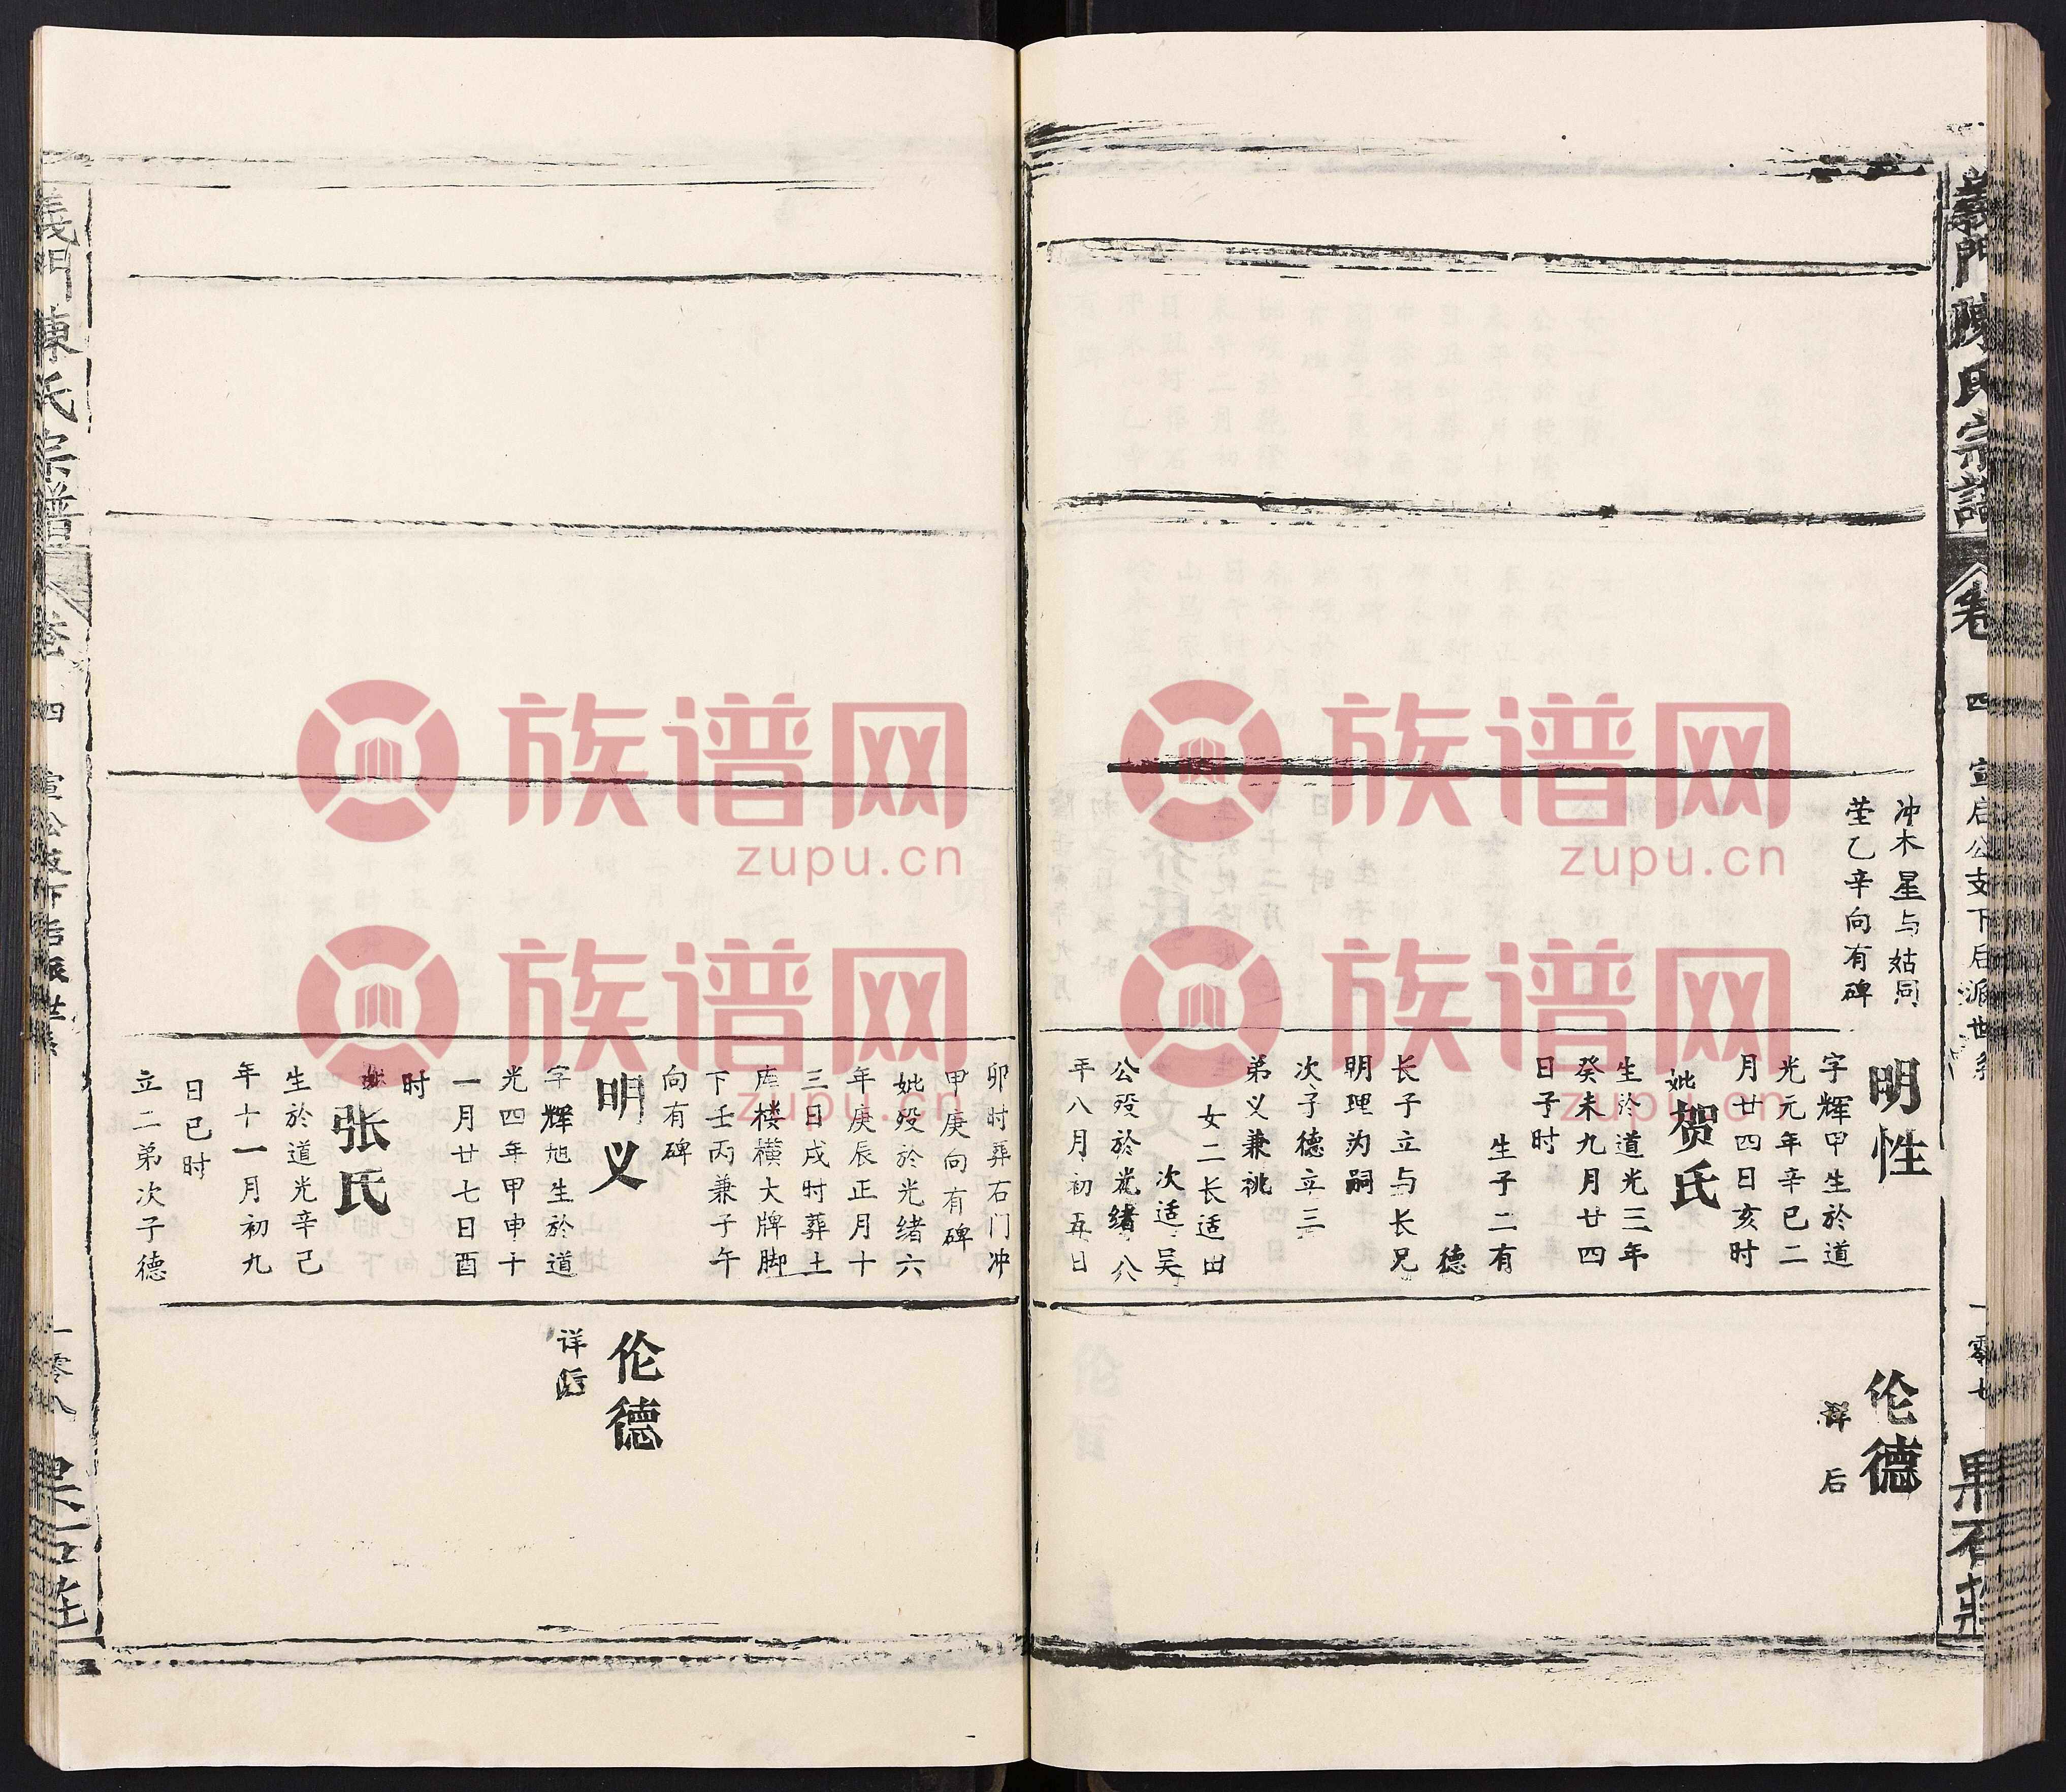 義門陳氏宗譜
卷四
宣启公支下后派世系
一零七
果石莊
冲木星与姑同
茔乙辛向有碑
明性
字辉甲生於道
光元年辛巳二
月廿四日亥时
妣贺氏
生於道光三年
癸未九月廿四
日子时
生子二有
德
长子立与长兄
明理为嗣
次子德立三
弟义兼祧
女二长适田
次适吴
公殁於光绪八
年八月初五日
伦德
详后
卯时葬石门冲
甲庚向有碑
妣殁於光绪六
年庚辰正月十
三日戌时葬土
库楼横大牌脚
下壬丙兼子午
向有碑
明义
字辉旭生於道
光四年甲申十
一月廿七日酉
时
张氏
生於道光辛己
年十一月初九
日巳时
立二弟次子德
伦德
详后
義門陳氏宗譜
卷四
一零八
族谱网
zupu.cn
族谱网
族谱网
zupu.cn
族谱网